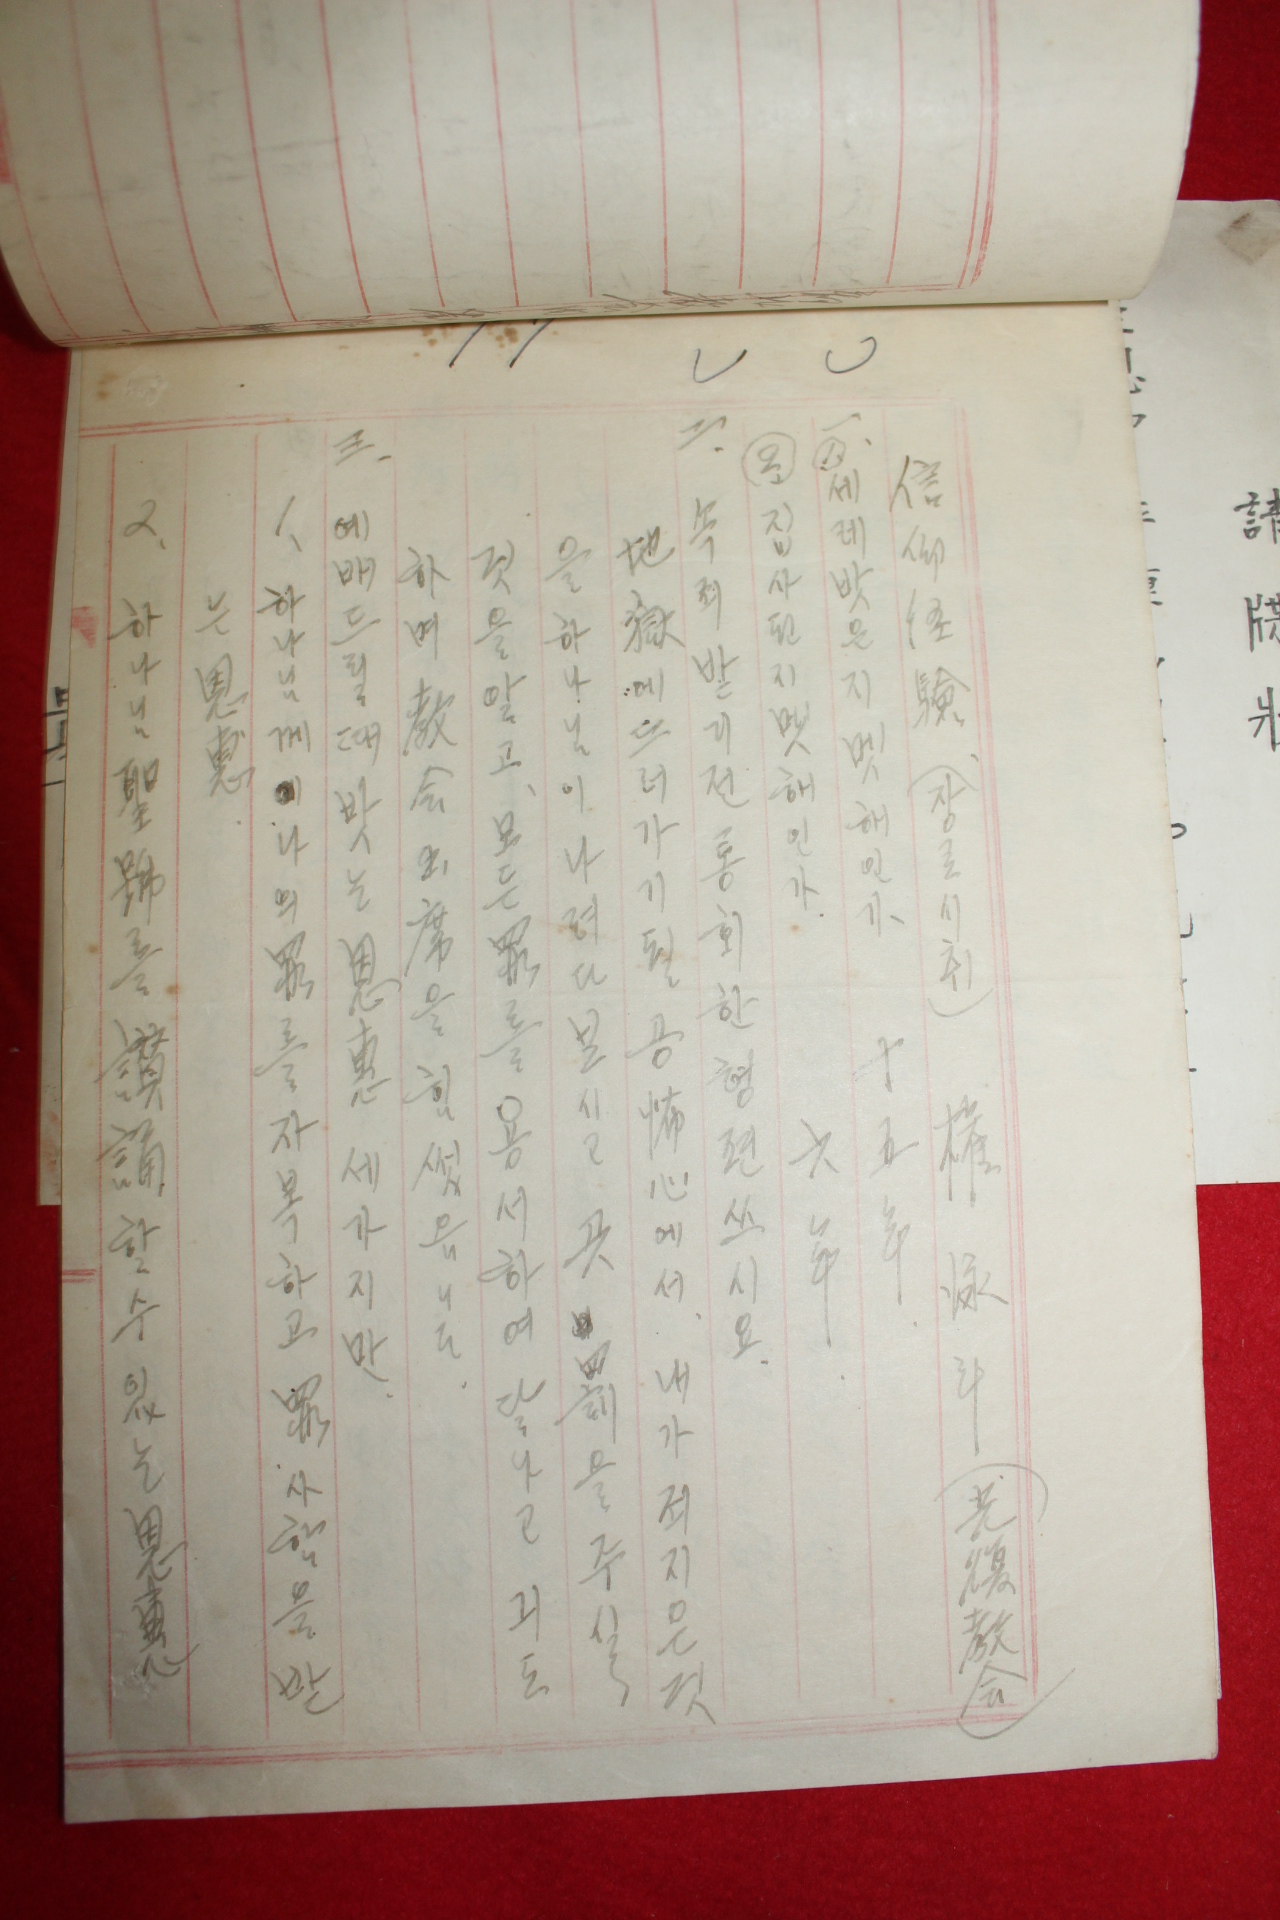 信仰経驗、(장로시취) 權泳라 (光復教会)
一. 세례밧은지 몟해인가、 十五年.
집사된지 몟해인가. 六年.
二. 속죄받기전 통회한 형편 쓰시요.
地獄에 뜨러가기 될 공怖心에서. 내가 죄지은것
을 하나님이 나려다 보시고 곳 罰을 주실
것을 알고、모든 罪를 용서하여 달나고 긔도
하며 教会 出席을 힘썻읍니다.
三. 예배드릴때 밧는 恩惠 세가지만.
1、하나님께 나의 罪를 자복하고 罪사함을 받
는 恩惠.
2、하나님 聖號를 讚誦할수 있는 恩惠
請牒狀